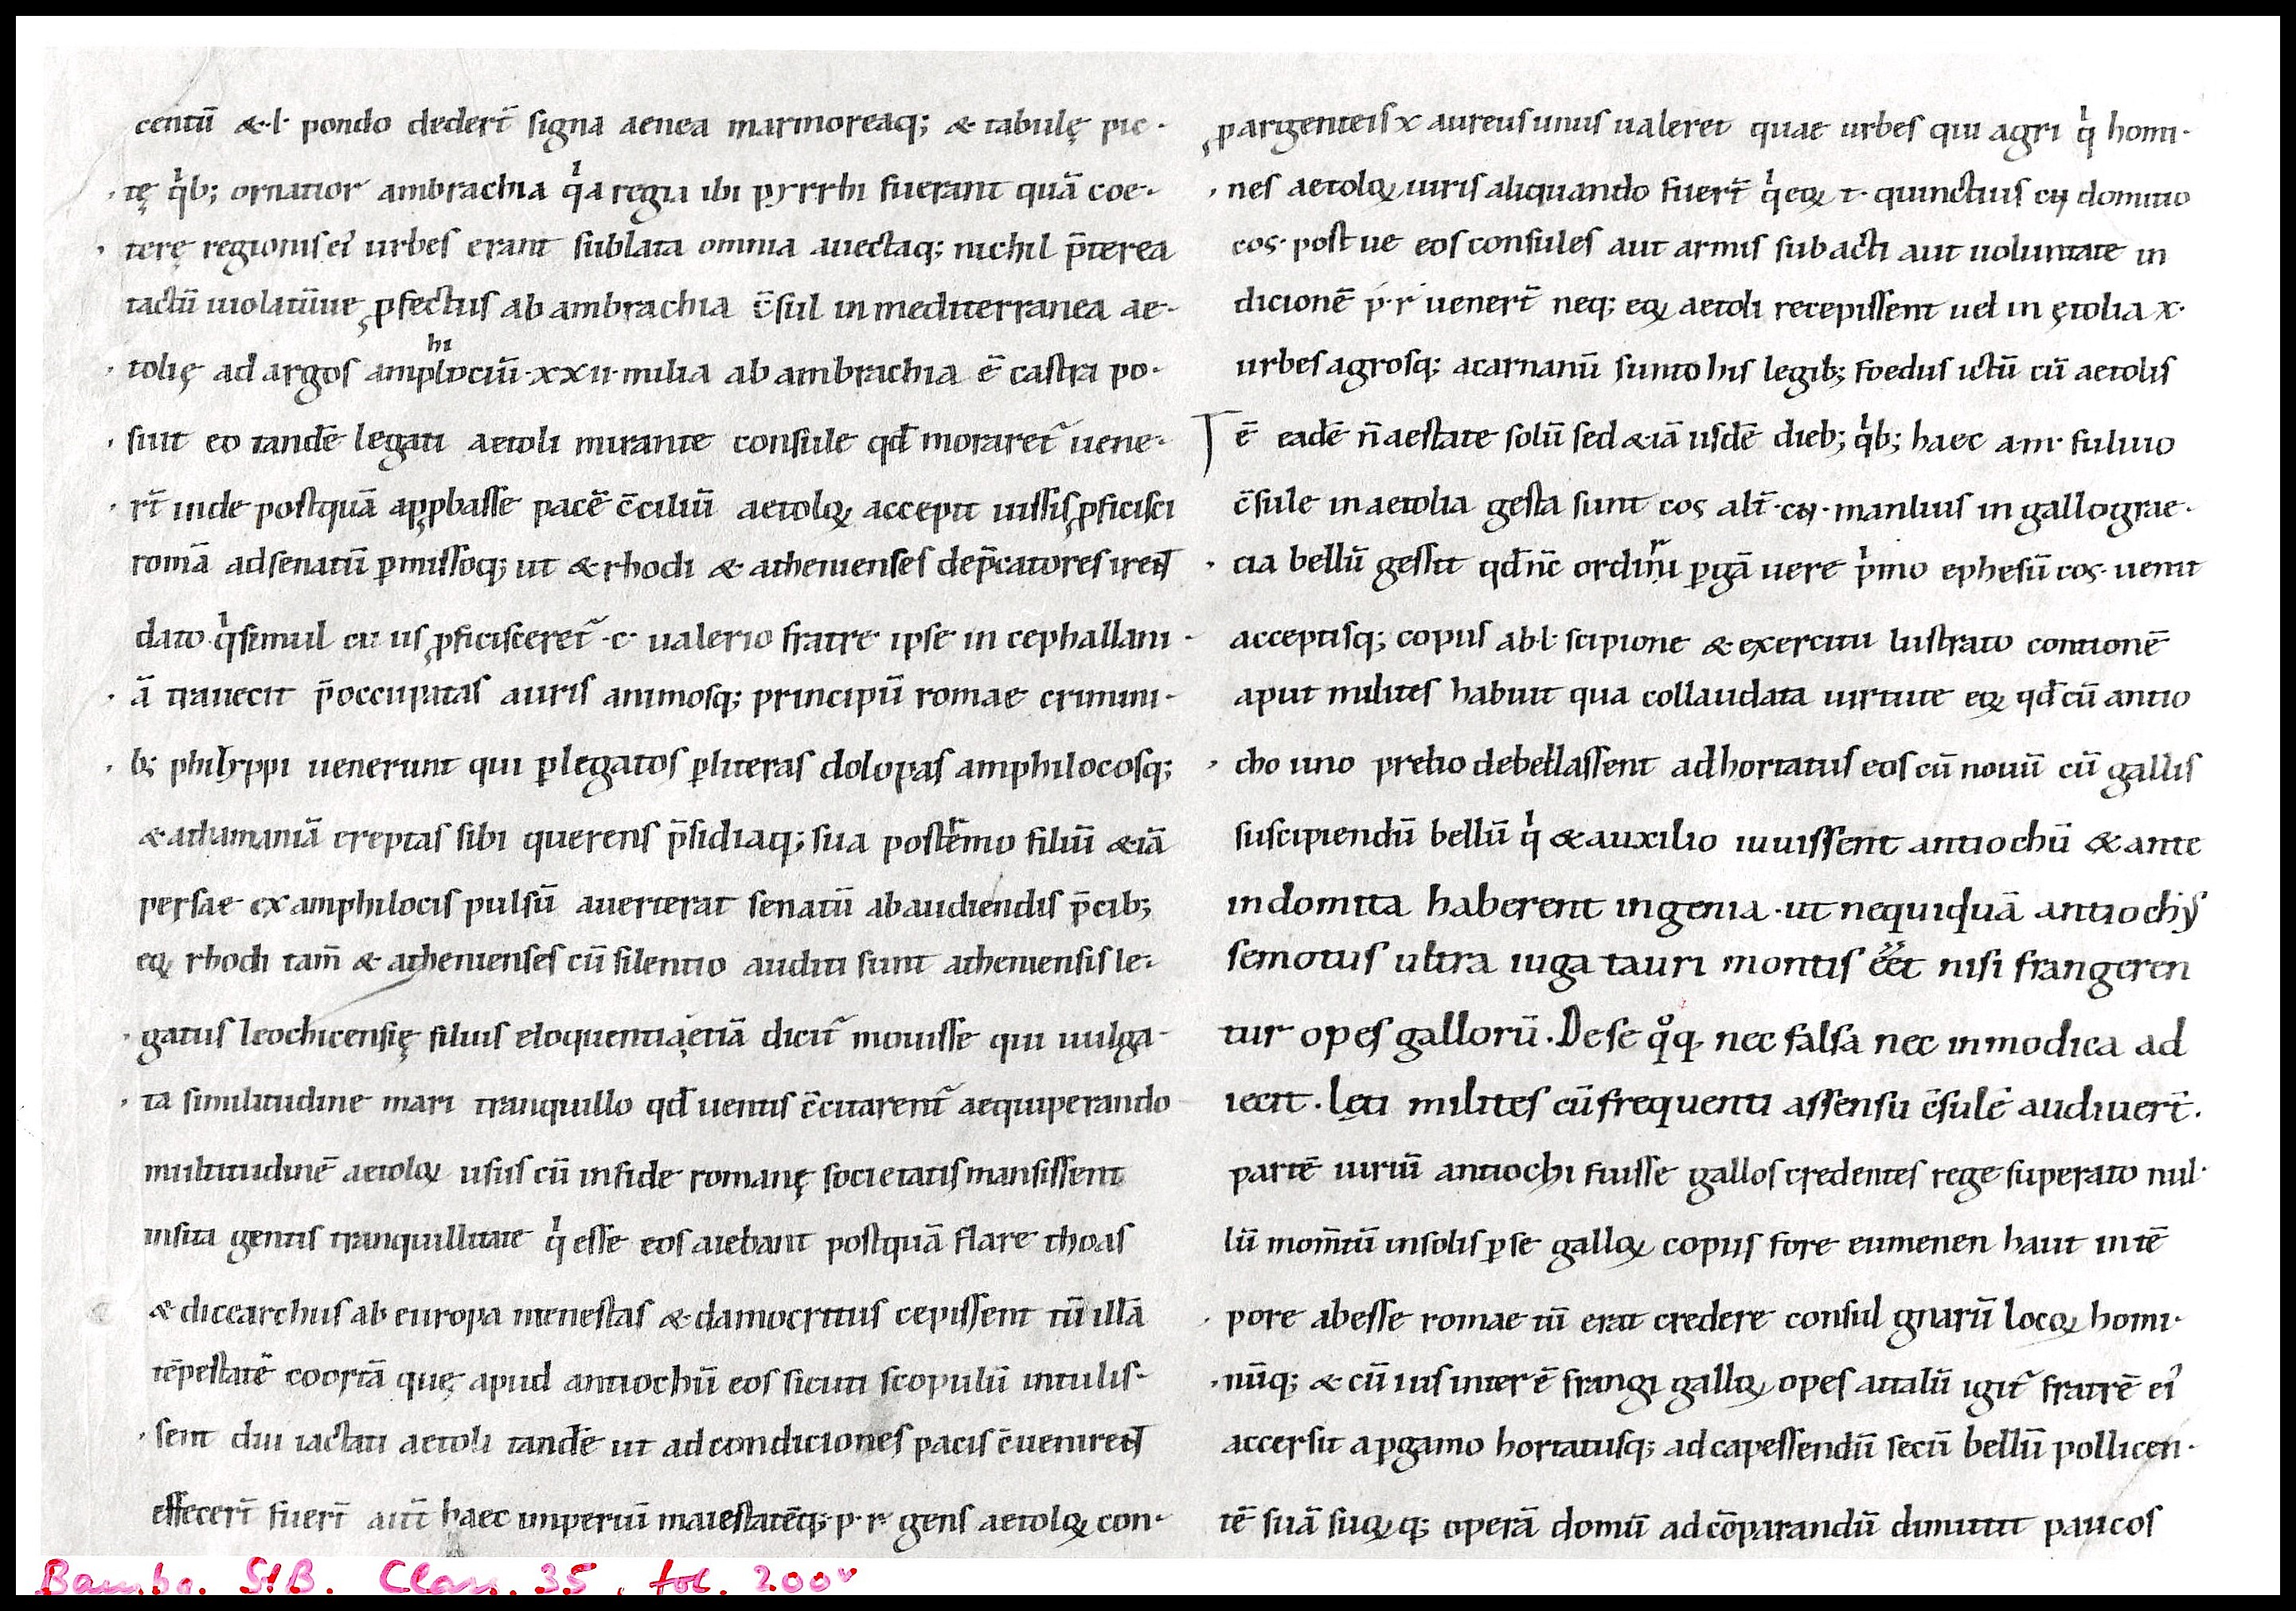 centū &·l· pondo dedert̄ signa aenea marmoreaq; & tabulę pic·
tę q̍b; ornatior ambrachia q̍a regia ibi pyrrhi fuerant quā coe·
terę regionis ei᾿ urbes erant sublata omnia auectaq; nichil p̄terea
tactū uiolatūue ꝓfectus ab ambrachia c̄sul in mediterranea ae·
tolię ad argos amphilociū·xxii·milia ab ambrachia ē castra po·
suit eo tandē legati aetoli mirante consule qđ moraret᷑ uene·
rt̄ inde postquā apꝓbasse pacē c̄ciliū aetoloꝝ accepit iussis ꝓficisci
romā ad senatū ꝑmissoq; ut & rhodi & athenienses dep̄catores irent
dato q̍ simul cū iis ꝓficisceret᷑ ·c· ualerio fratre ipse in cephallani·
ā traiecit p̄occupatas auris animosq; principū romae crimini·
b; philyppi uenerunt qui ꝑ legatos ꝑ literas dolopas amphilocosq;
& athamaniā ereptas sibi querens p̄sidiaq; sua postremo filiū &iā
persae ex amphilocis pulsū auerterat senatū ab audiendis p̄cib;
eoꝝ rhodi tam̄ & athenienses cū silentio auditi sunt atheniensis le·
gatus leochicensię filius eloquentia etiā dicit᷑ mouisse qui uulga·
ta similitudine mari tranquillo qđ uentis c̄citarent᷑ aequiperando
multitudinē aetoloꝝ usus cū in fide romanę societatis mansissent
insita gentis tranquillitate q̍esse eos aiebant postquā flare thoas
& dicearchus ab europa menestas & damocritus cepissent tū illā
tēpestatē coortā quę apud antiochū eos sicuti scopulū intulis·
sent diu iactati aetoli tandē ut ad condiciones pacis c̄uenirent
effecert̄ fuert̄ aut̄ haec imperiū maiestatēq; p·r· gens aetoloꝝ con·
ꝓ argenteis x aureus unus ualeret quae urbes qui agri q̍ homi·
nes aetoloꝝ iuris aliquando fuert̄ q̍ eoꝝ t· quinctius cn domitio
cos· postue eos consules aut armis subacti aut uoluntate in
dicionē p·r· uenert̄ neq; eoꝝ aetoli recepissent uel in ętolia x·
urbes agrosq; acarnanū sunto his legib; foedus ictū cū aetolis
ē eadē n̄ aestate solū sed &iā iisdē dieb; q̍b; haec a·m· fuluio
c̄sule in aetolia gesta sunt cos alt̄ ·cn· manlius in gallograe·
cia bellū gessit qđ nc̄ ordiri ꝑgā uere p̍mo ephesū cos· uenit
acceptisq; copiis ab·l· scipione & exercitu lustrato contionē
aput milites habuit qua collaudata uirtute eoꝝ qđ cū antio
cho uno prelio debellassent adhortatus eos cū nouū cū gallis
suscipiendū bellū q̍ & auxilio iuuissent antiochū & ante
indomita haberent ingenia·ut nequiquā antiochus
semotus ultra iuga tauri montis eēt nisi frangeren
tur opes gallorū. De se qͦq nec falsa nec inmodica ad
iecit. lęti milites cū frequenti assensu c̄sulē audiuert̄.
partē uiriū antiochi fuisse gallos credentes rege superato nul·
lū mom̄tū in solis ꝑ se galloꝝ copiis fore eumenen haut in tē
pore abesse romae tū erat credere consul gnarū locoꝝ homi·
nūq; & cū iis inter ē frangi galloꝝ opes attalū igit᷑ fratrē ei᾿
accersit a ꝑgamo hortatusq; ad capessendū secū bellū pollicen·
tē suā suoꝝq; operā domū ad cōparandū dimittit paucos
Bambg. StB. Class. 35, fol. 200v